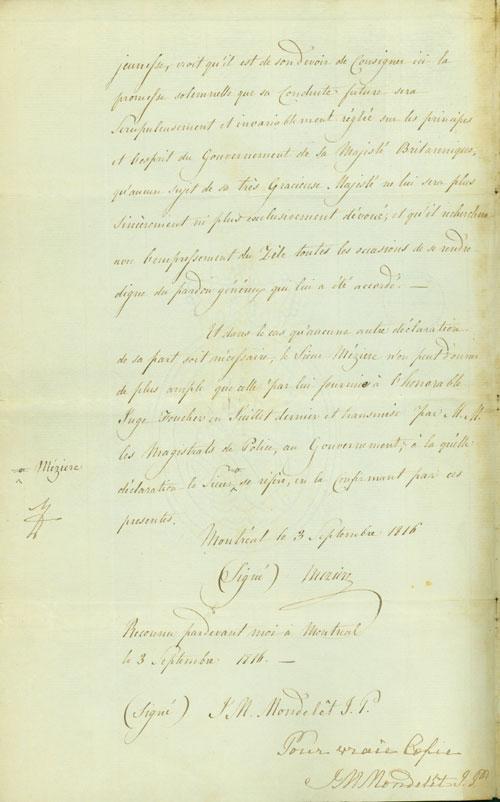 jeunesse, croit qu'il est de son devoir de Consigner ici la
promesse solemnelle que sa Conduite future sera
Scrupuleusement et invariablement réglée sur les principes
et l'esprit du Gouvernement de Sa Majesté Britannique,
qu'aucun sujet de sa très Gracieuse Majesté ne lui sera plus
Sincèrement ni plus exclusivement dévoué, et qu'il recherchera
avec l'empressement du Zèle toutes les occasions de se rendre
digne du pardon généreux qui lui a été accordé. —
Et dans le cas qu'aucune autre déclaration
de sa part soit nécessaire, le Sieur Mézière n'en peut fournir
de plus ample que celle par lui fournie à l'honorable
Juge Foucher en Juillet dernier et transmise par M. M.
les Magistrats de Police, au Gouvernement, à laquelle
déclaration le Sieur ^ se réfère, en la Confirmant par ces
presentes.
^ Mézière
Montréal le 3 Septembre 1816
(Signé) Mézière
Reconnu pardevant moi à Montréal
le 3 Septembre 1816. —
(Signé) J. M. Mondelèt J. P.
Pour vraie Copie
J M Mondelèt J. P.